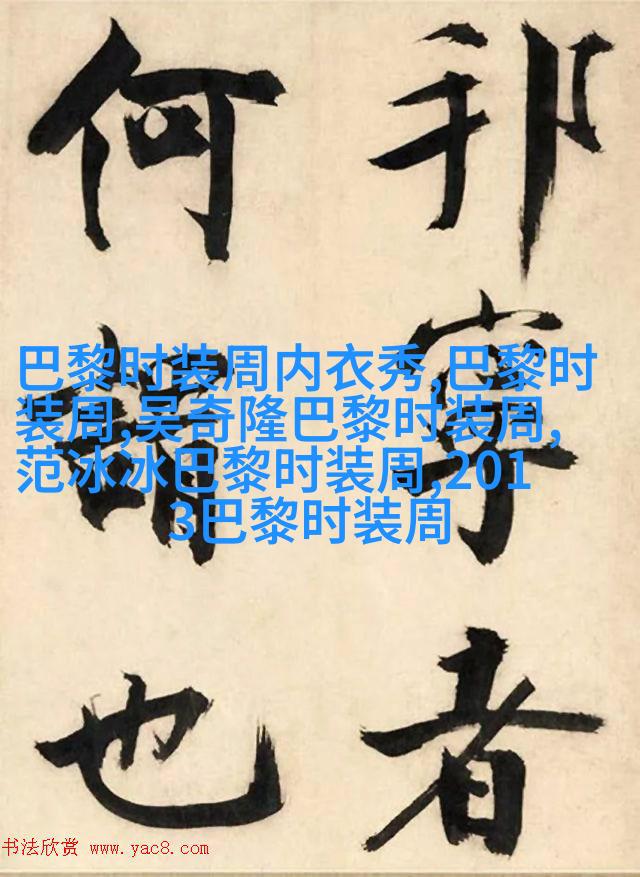 邦寧者
何謂也
巴黎时装周内衣秀,巴黎时
装周,吴奇隆巴黎时装周,
范冰冰巴黎时装周,201
3巴黎时装周
书法欣赏 www.yac8.com